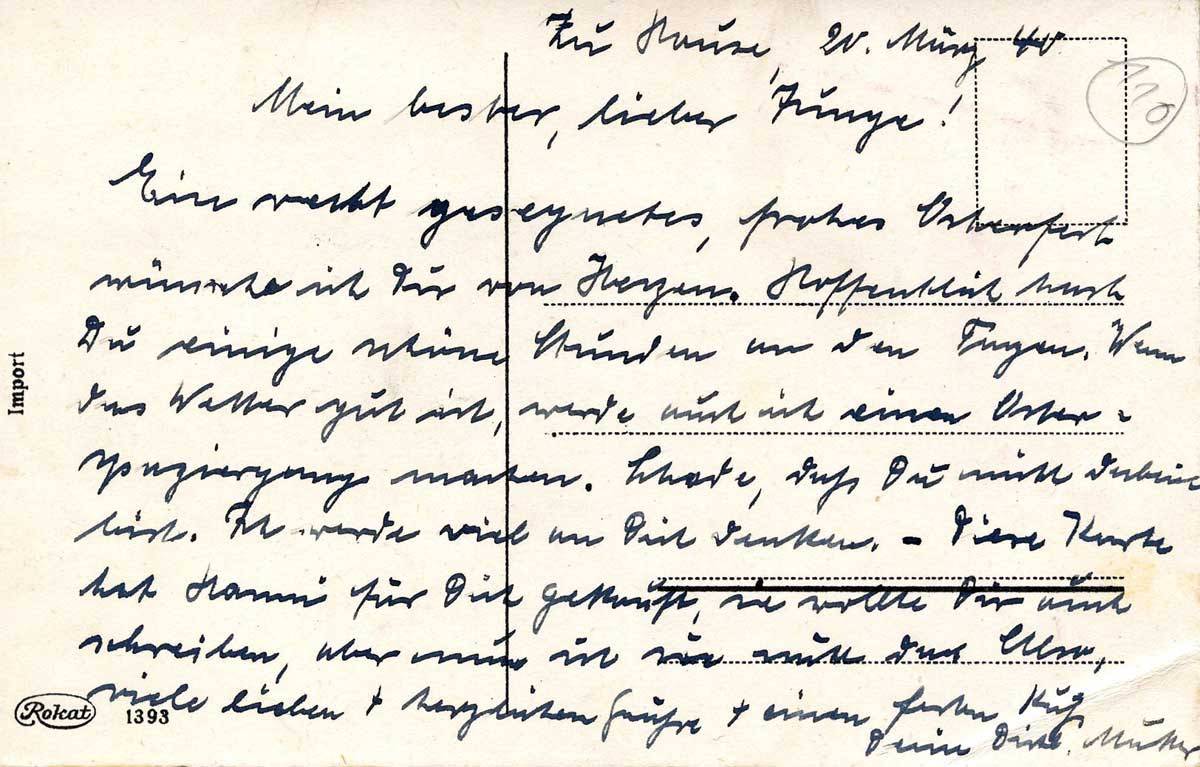 Zu Hause, 20. März 40
110
Mein bester, lieber Junge!
Ein recht gesegnetes, frohes Osterfest
wünsche ich Dir von Herzen. Hoffentlich hast
Du einige schöne Stunden an den Tagen. Wenn
das Wetter gut ist, werde auch ich einen Oster-
spaziergang machen. Schade, daß Du nicht dabei
bist. Ich werde viel an Dich denken. – Diese Karte
hat Hanni für Dich gekauft, sie wollte Dir auch
schreiben, aber nun ist sie nicht da. Also,
viele lieben + herzlichen Grüße + einen festen Kuß
Deine Mutter
Import
Rokat 1393